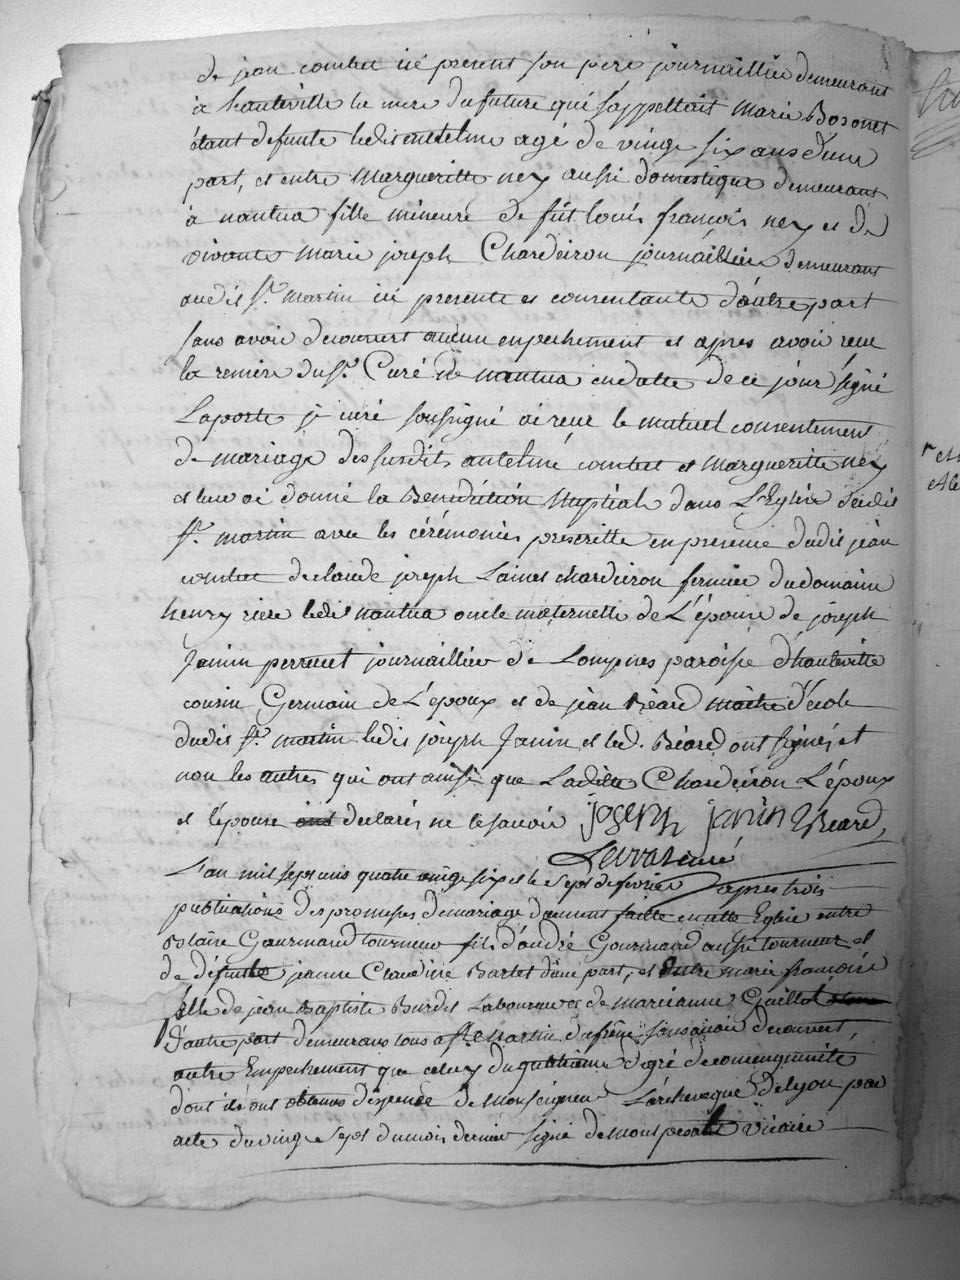 de jean combet icé present son pere journaillier demeurant
à hauteville la mere du future qui s'appellait Marie Bozonet
étant defunte ledit antelme agé de vingt six ans d'une
part, et entre Margueritte ney aussi domestique demeurant
à nantua fille mineure de fut louis francois ney et de
vivante marie joseph Chardeiron journaillier demeurant
audit st. martin icé presente et consentante d'autre part
sans avoir decouvert aucun enpechement et apres avoir reçu
la remise du sr. Curé de nantua en datte de ce jour signé
Laporte je curé soussigné ai reçu le mutuel consentement
de mariage des susdits antelme combet et margueritte ney
et leur ai donné la Benediction Nuptial dans L'Eglise dudit
st. martin avec les cérémonies prescritte en presence dudit jean
combet de claude joseph Laines chardeiron fermier du domaine
henry riere ledit nantua oncle maternelle de L'épouse de joseph
Janin perrucet journaillier de Lompnes paroisse d'hauteville
cousin Germain de L'époux et de jean Béard maitre d'école
dudit st. martin ledit joseph Janin et led. Béard ont signés et
non les autres qui ont ainsi que Laditte Chardeiron L'époux
et l'epouse ont declarés ne le savoir joseph janin Béard
curé
L'an mil sept cens quatre vingt six et le sept de fevrier apres trois
publications des promesses de mariage duement faitte en cette Eglise entre
Claire Gourmand tourneur fils d'andré Gourmand aussi tourneur et
de défunte jeanne Claudine Barlet d'une part, et Entre marie francoise
fille de jean Baptiste Burdet Laboureur et de marie anne Gaillot
d'autre part demeurans tous a st. Martin du frêne sans avoir decouvert
autre Empechement que celuy du quatrieme degré de consenguinité
dont ils ont obtenus dispense de Monseigneur L'archeveque de Lyon par
acte du vingt sept du mois dernier signé de Montperoux vicaire